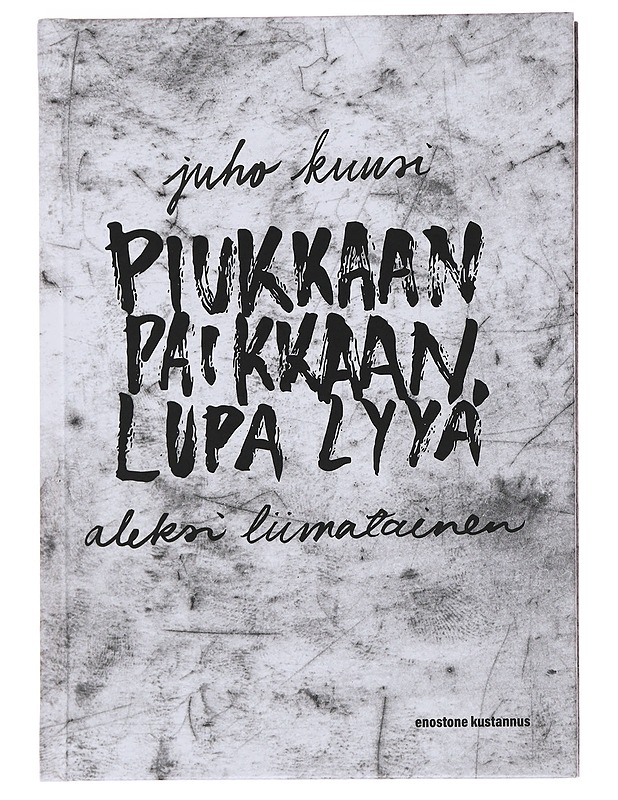 juho kuusi
PIUKKAAN
PAIKKAAN,
LUPA LYYÄ
aleksi liimatainen
enostone kustannus